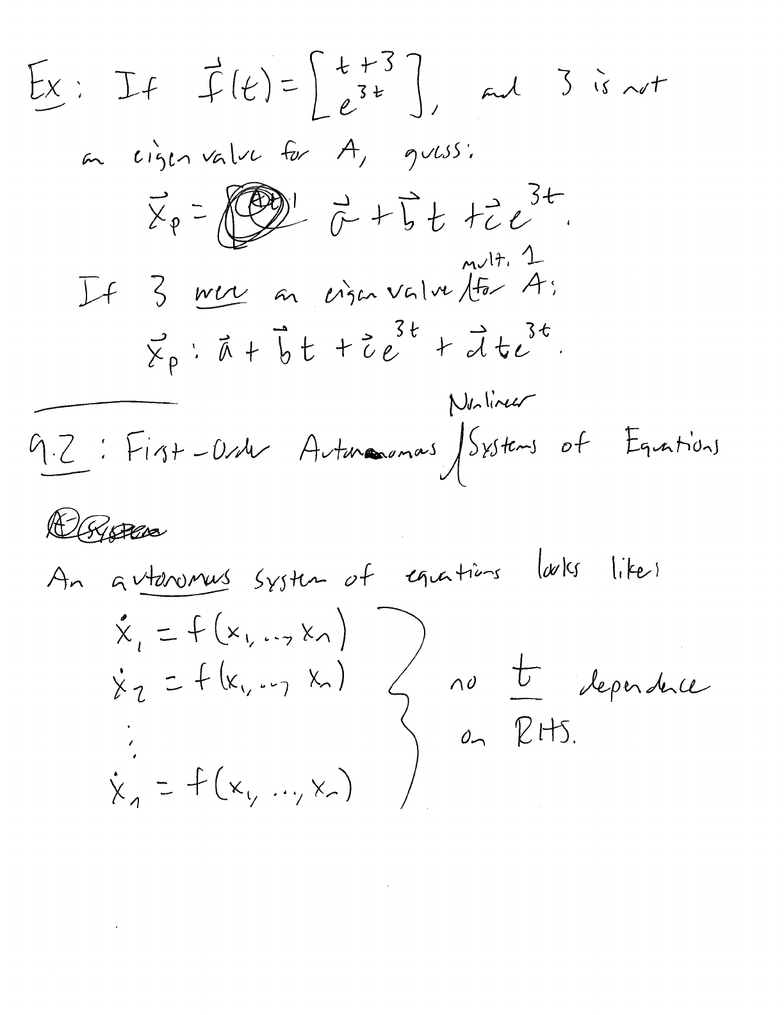 Ex: If f⃗(t) = [t+3
e^{3t}], and 3 is not
an eigenvalue for A, guess:
x⃗_p = a⃗ + b⃗t + c⃗e^{3t}.
mult. 1
If 3 were an eigenvalue for A:
x⃗_p: a⃗ + b⃗t + c⃗e^{3t} + d⃗te^{3t}.
Nonlinear
9.2: First-Order Autonomous Systems of Equations
An autonomous system of equations looks like:
ẋ_1 = f(x_1, ..., x_n)
ẋ_2 = f(x_1, ..., x_n)
⋮
ẋ_n = f(x_1, ..., x_n)
no t dependence
on RHS.